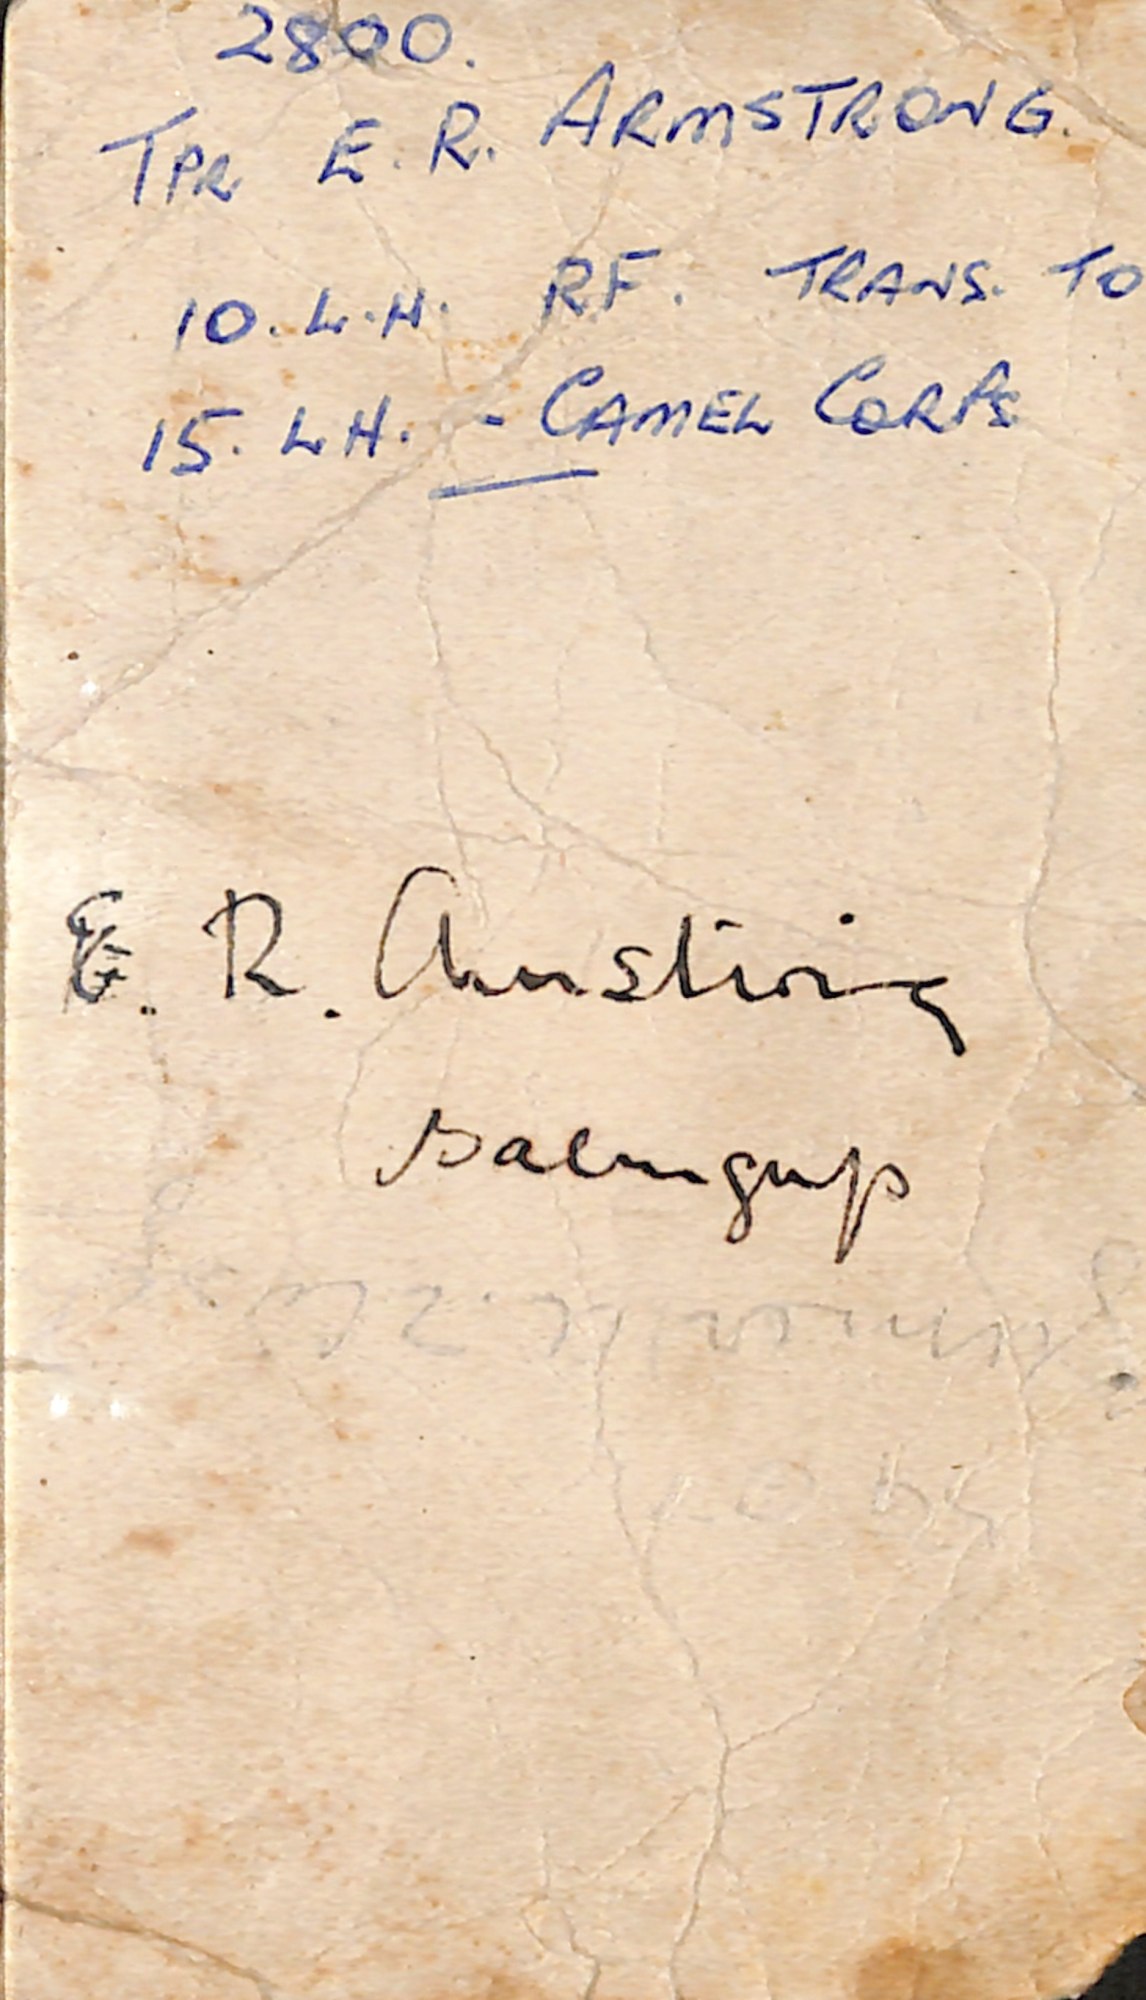 2800.
TPR E. R. ARMSTRONG.
10. L.H. RF. TRANS. TO
15. LH. - CAMEL CORPS
E. R. Armstrong
Balingup